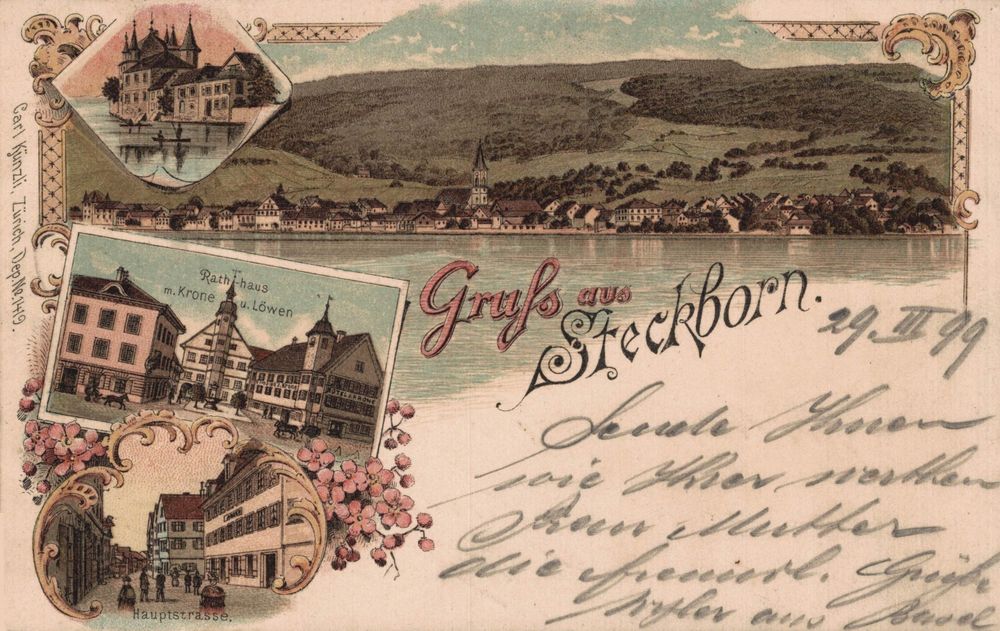 Carl Künzli, Zürich, Dep. No. 1419.
Rathhaus
m. Krone u. Löwen
Gruss aus
Steckborn.
Hauptstrasse.
29. III 99
Sende Ihnen
wie Ihrer werthen
Frau Mutter
die freundl. Grüße
aus Basel